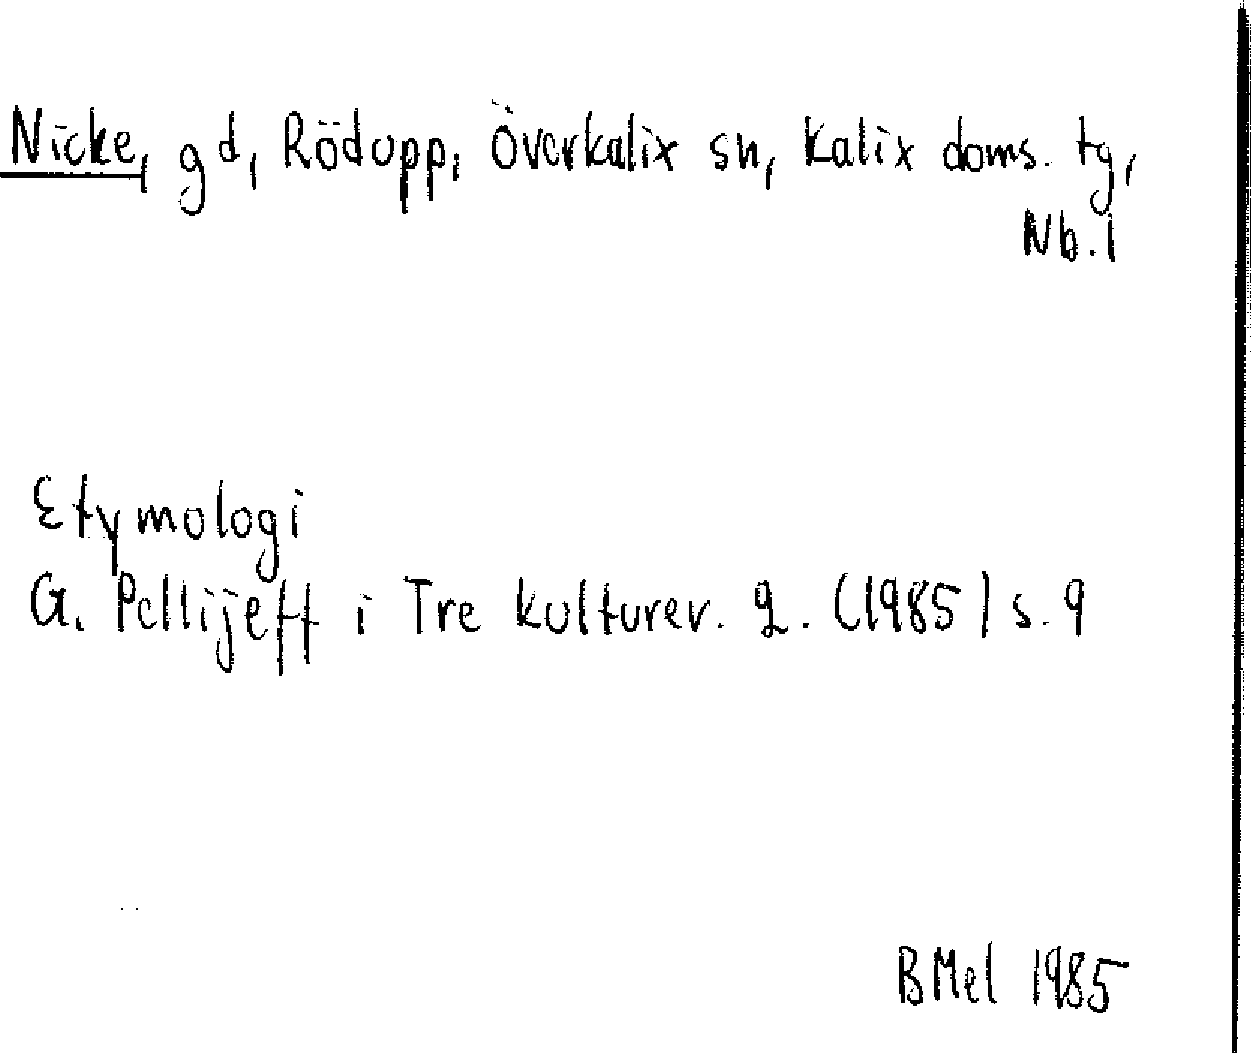 Nicke, gd, Rödupp, Överkalix sn, Kalix doms. tg,
Nb.l
Etymologi
G. Pellijeff i Tre kulturer. 2. (1985) s. 9
BMel 1985